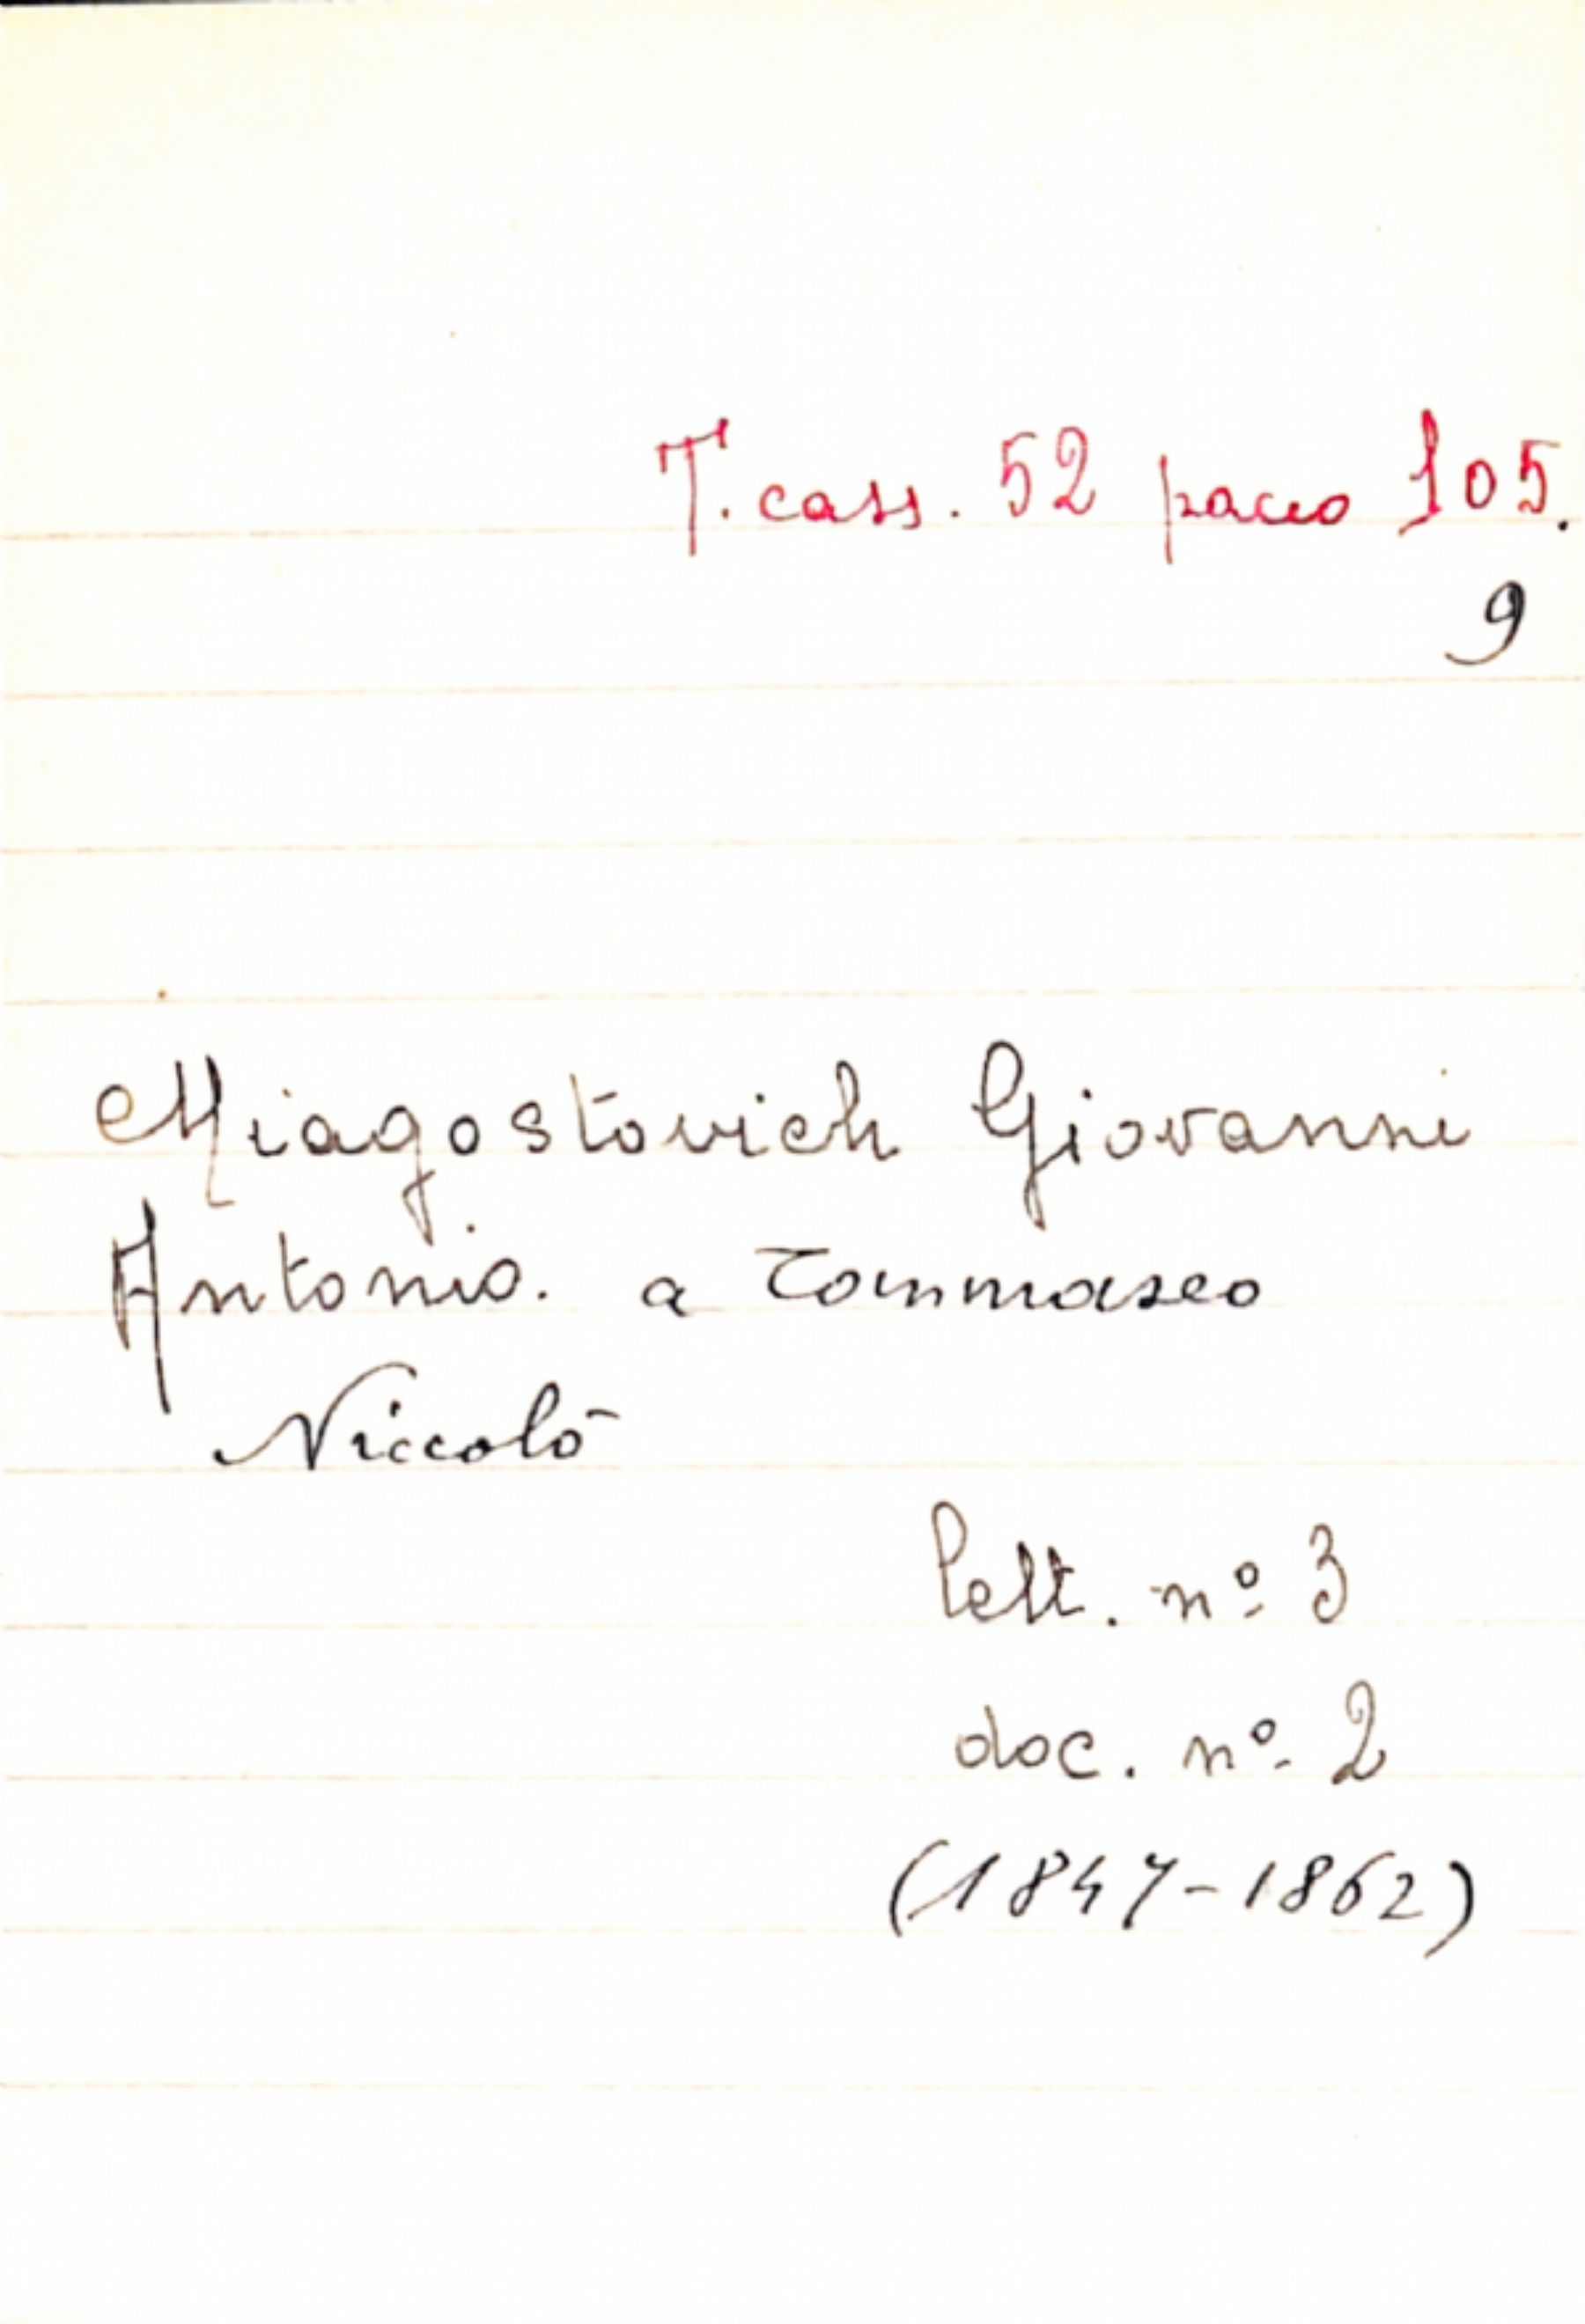 T. cass. 52 pacco 105.
9
Miagostovich Giovanni
Antonio. a Tommaseo
Niccolò
Lett. nº 3
doc. nº 2
(1847-1862)